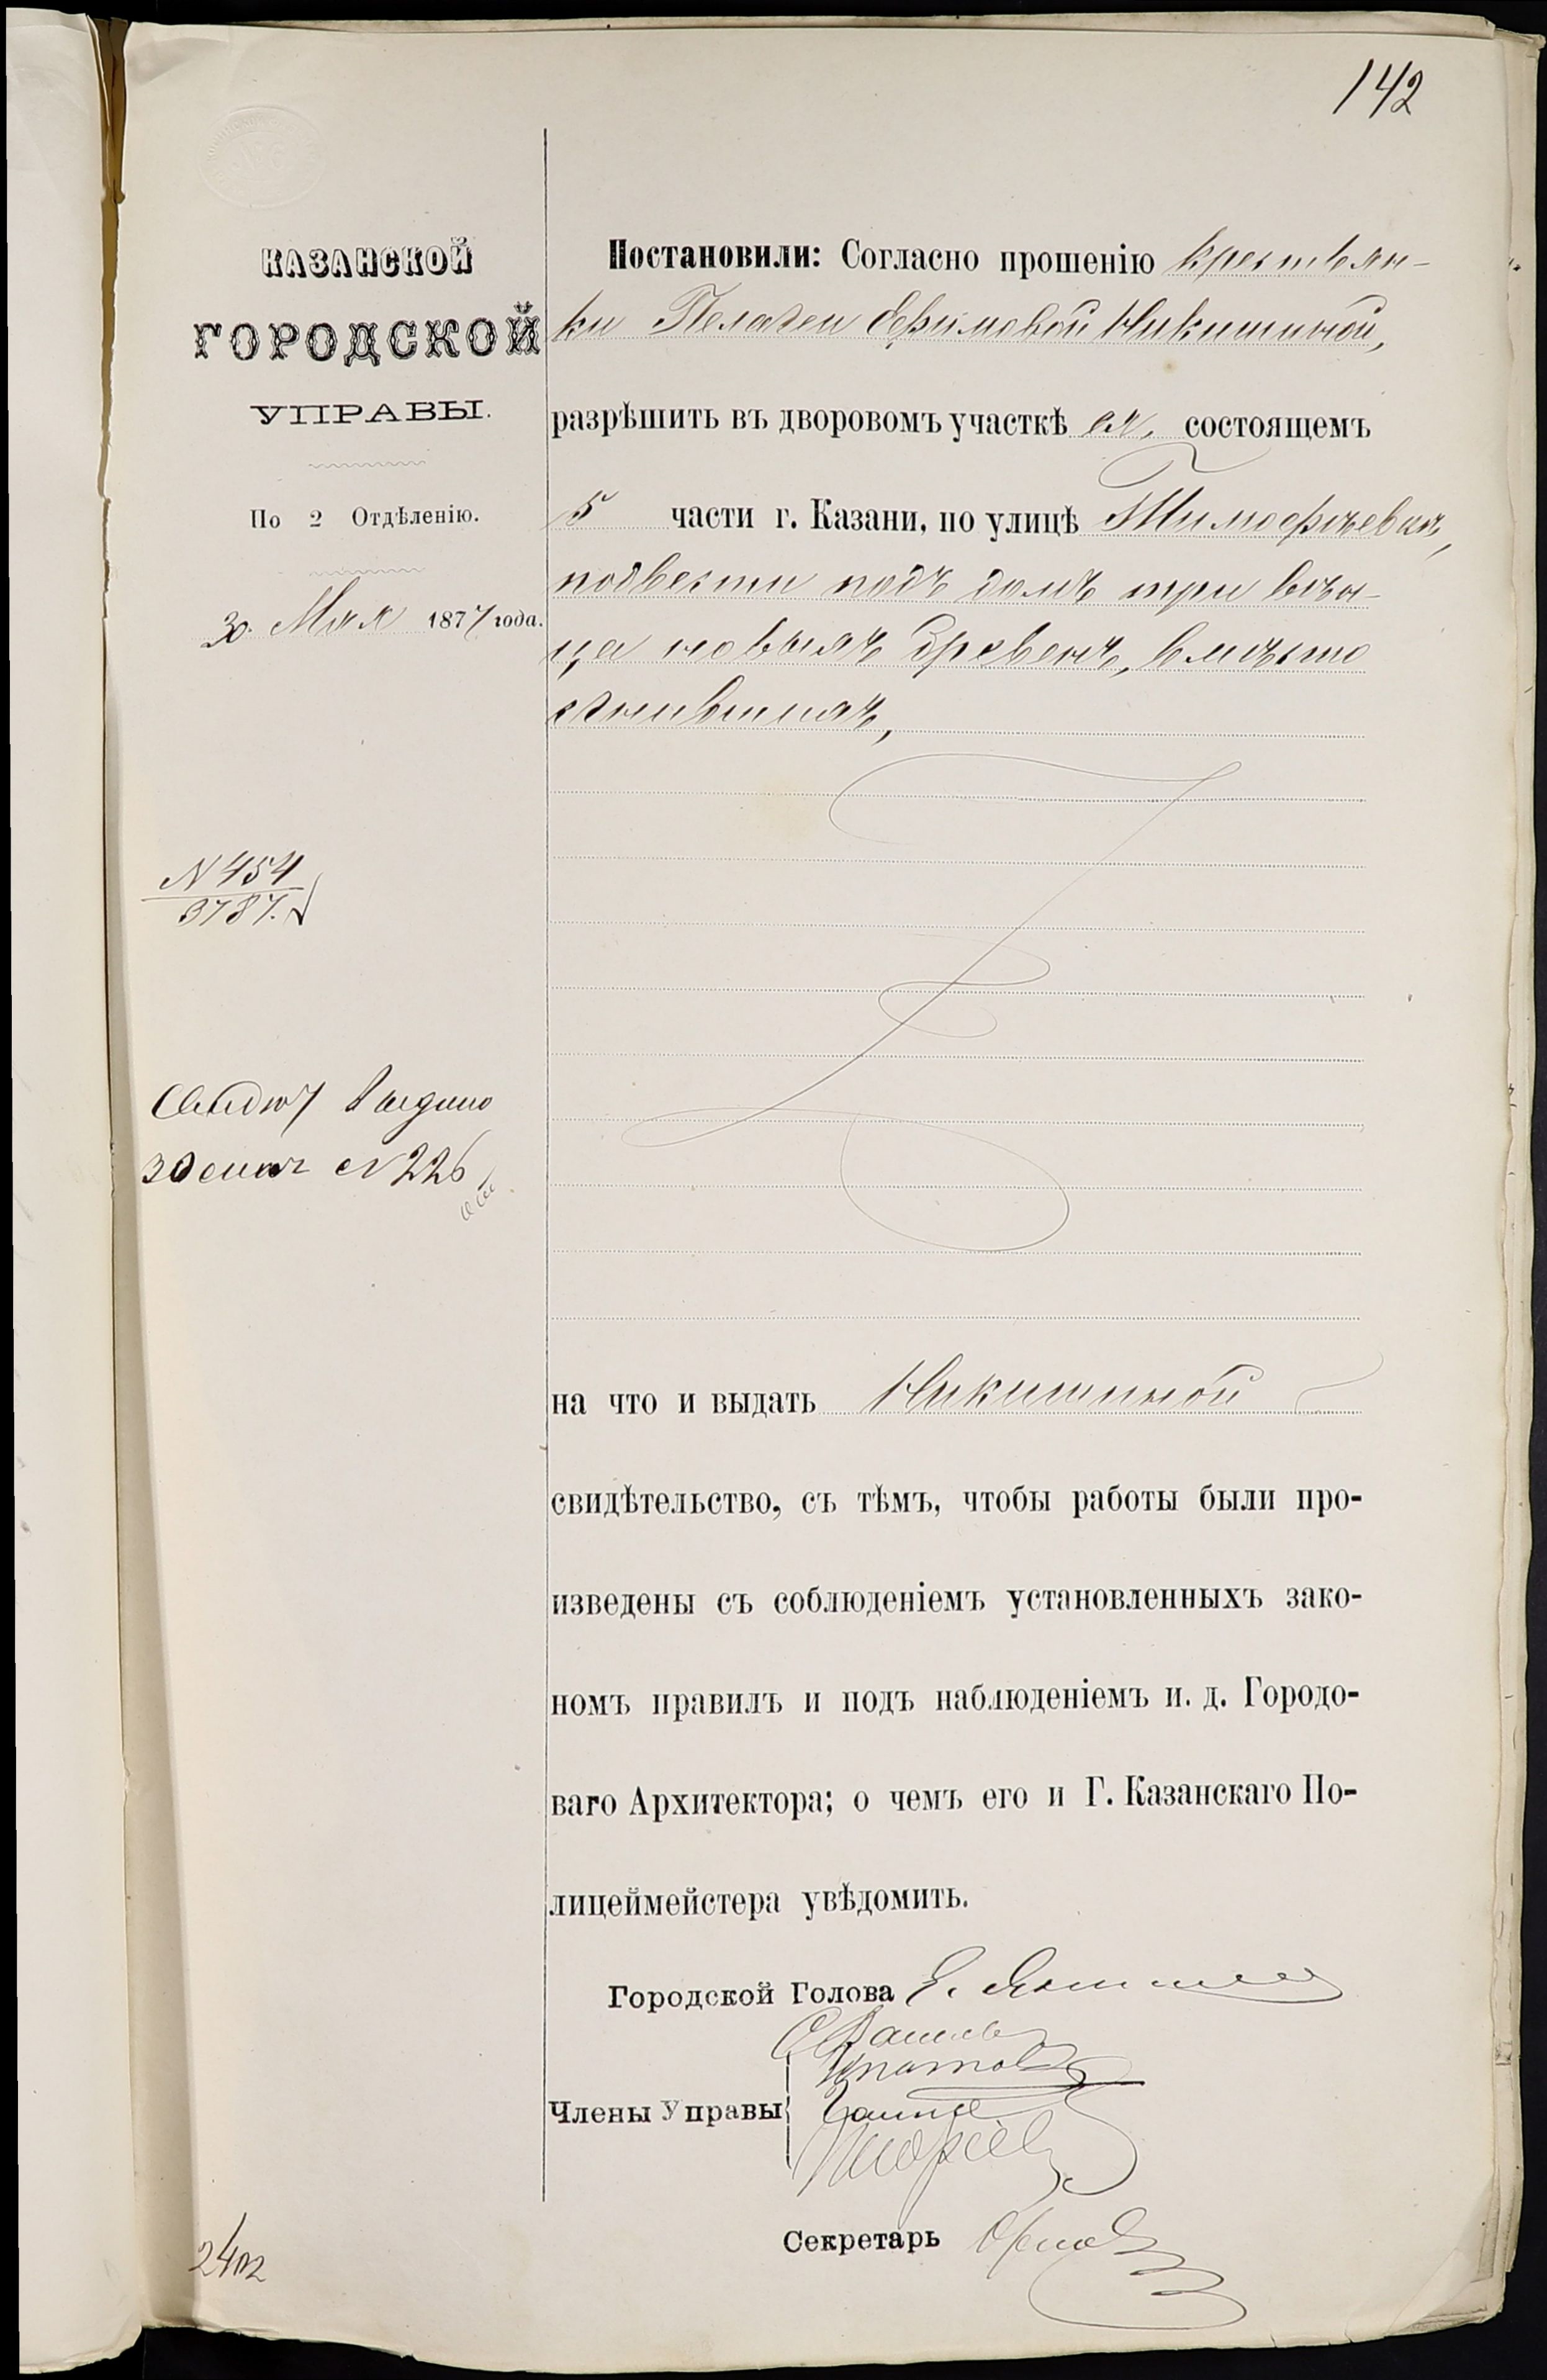 142
КАЗАНСКОЙ
ГОРОДСКОЙ
УПРАВЫ.
По 2 Отдѣленію.
30. Мая 1877 года.
N 454
3787.
Свидѣт выдано
30 мая N 226
Постановили: Согласно прошенію крестьян-
ки Пелагеи Ефимовой Никишиной,
разрѣшить въ дворовомъ участкѣ ея, состоящемъ
5 части г. Казани, по улицѣ Тимофѣевкѣ,
подвести подъ домъ три вѣн-
ца новыхъ бревенъ, вмѣсто
сгнившихъ,
на что и выдать Никишиной
свидѣтельство, съ тѣмъ, чтобы работы были про-
изведены съ соблюденіемъ установленныхъ зако-
номъ правилъ и подъ наблюденіемъ и. д. Городо-
ваго Архитектора; о чемъ его и Г. Казанскаго По-
лицеймейстера увѣдомить.
Городской Голова
Члены Управы
Секретарь